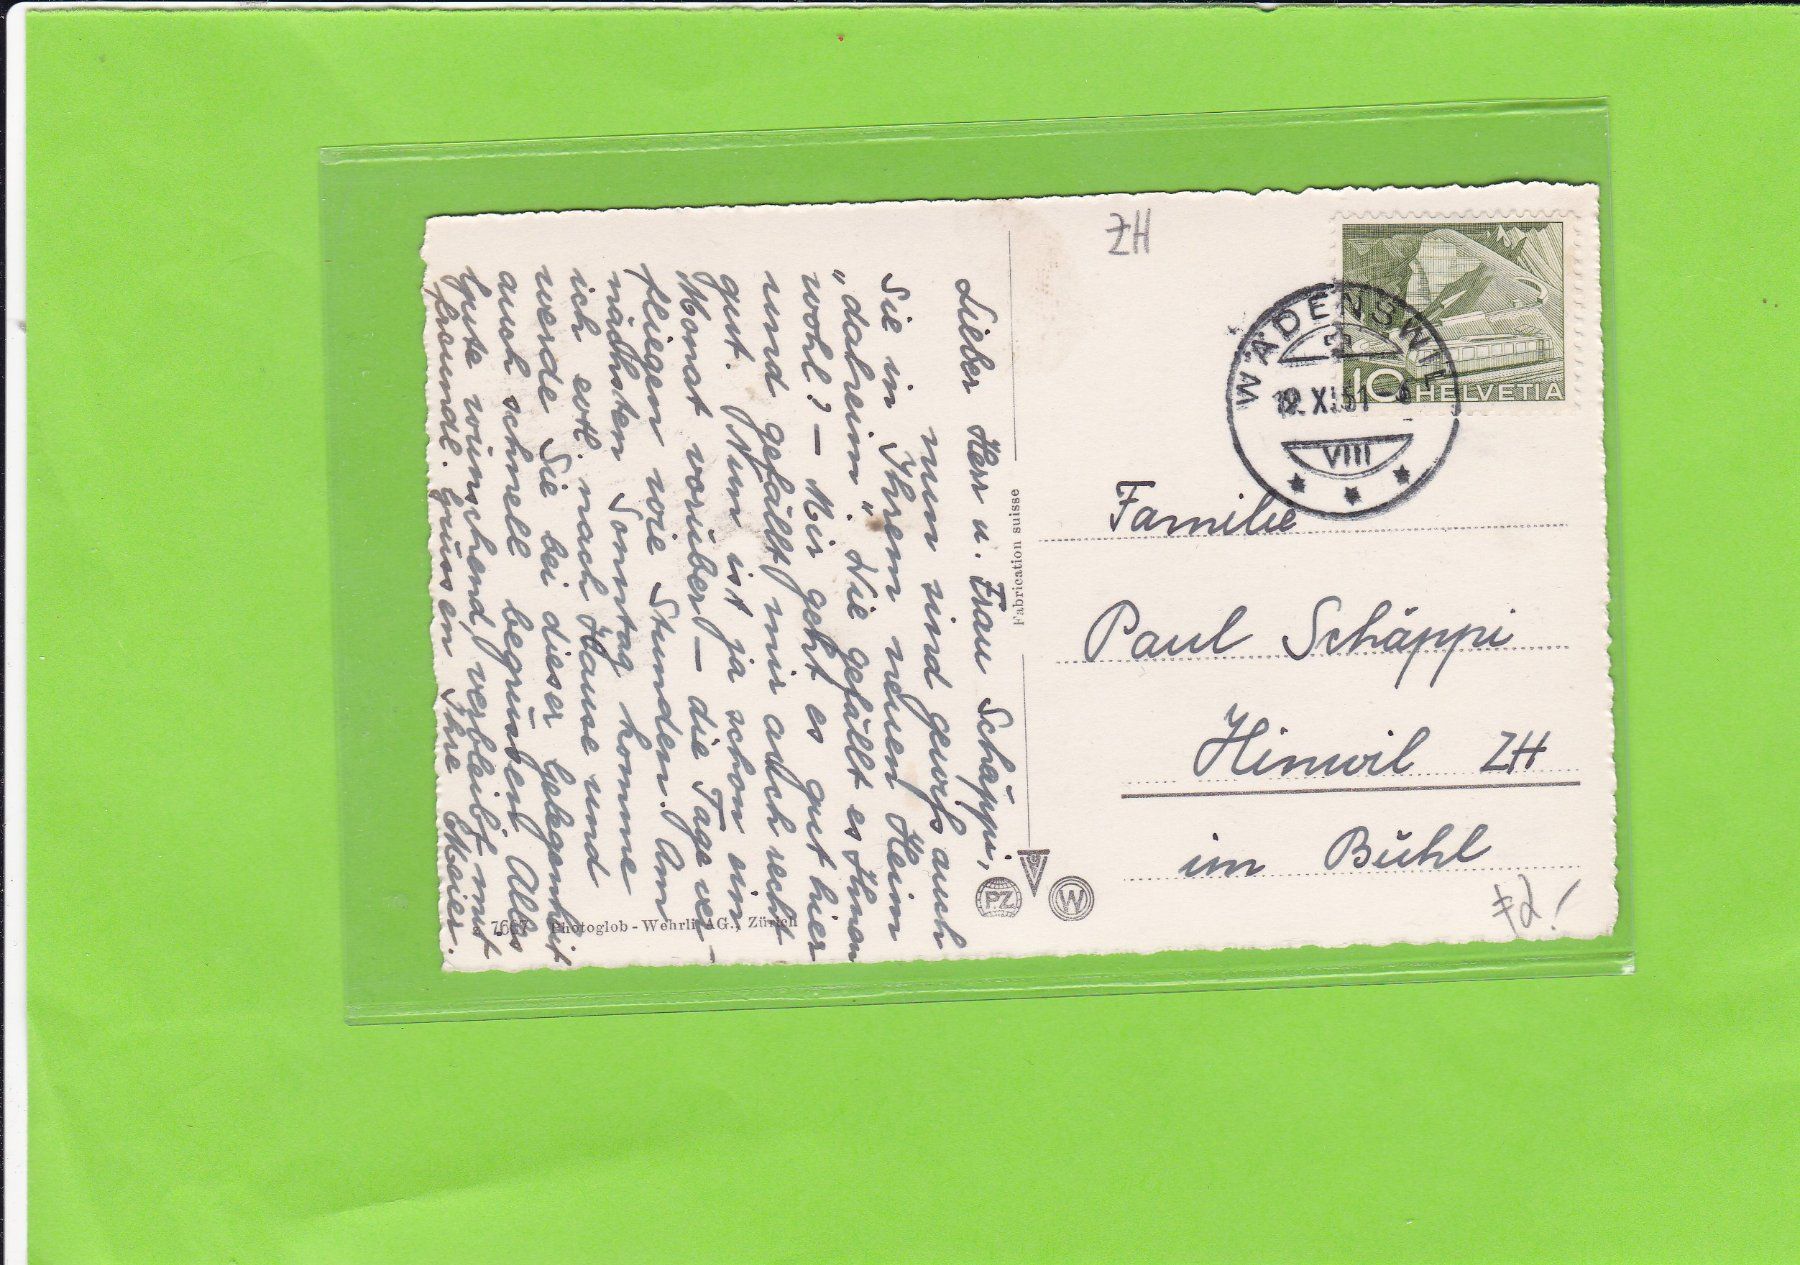 Lieber Herr u. Frau Schäppi,
nun sind gewiss auch
Sie in Ihrem neuen Heim
"daheim". Wie gefällt es Ihnen
wohl? – Mir geht es gut hier
und gefällt mir auch recht
gut. Nun ist ja schon ein
Monat vorüber – die Tage ver-
fliegen wie Stunden. Am
nächsten Sonntag komme
ich evtl. nach Hause und
werde Sie bei dieser Gelegenheit
auch schnell begrüssen. Alles
Gute wünschend, verbleibt mit
freundl. Grüssen Ihre Meier.
7667 Photoglob - Wehrli AG., Zürich
Fabrication suisse
PZ
W
ZH
10 HELVETIA
WÄDENSWIL
XI.51
VIII
Familie
Paul Schäppi
Hinwil ZH
im Bühl
2.-